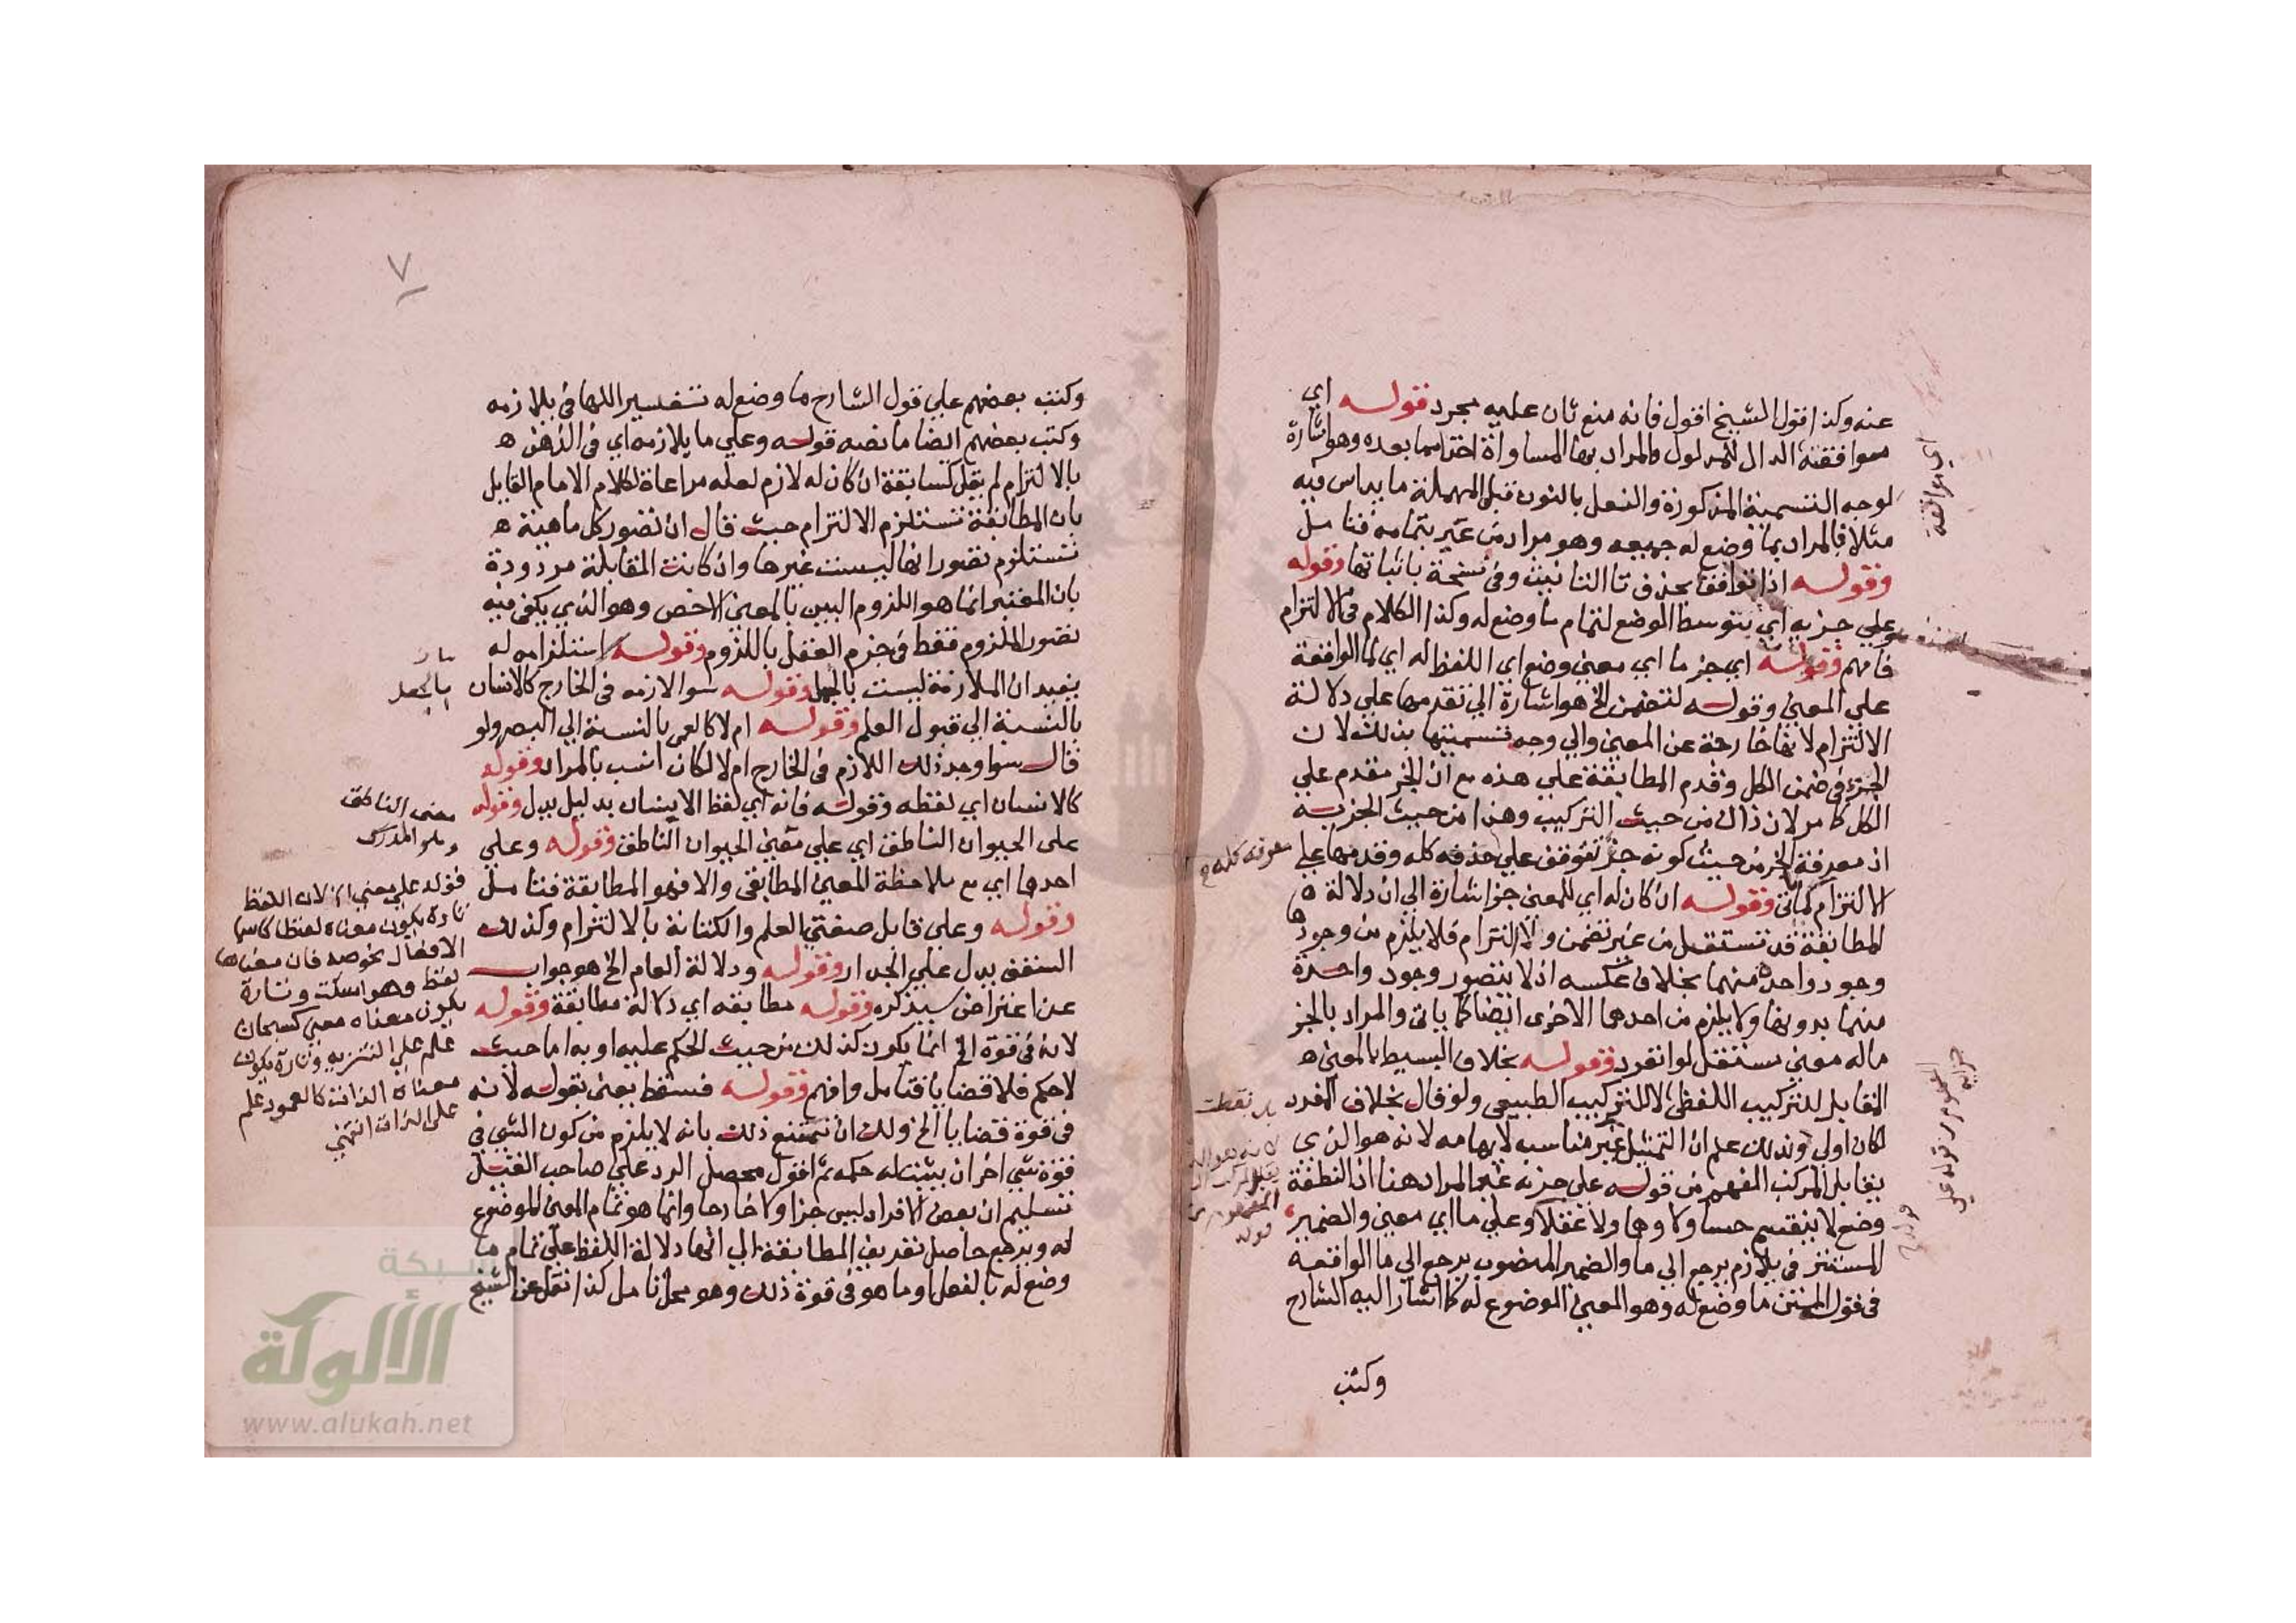 عنه وكذا قول الشيخ اقول فانه منع ثان عليه مجرد قوله اي
موافقة الدال للمدلول فالمراد بها المساواة اخذا مما بعده وهو اشارة
لوجه التسمية المذكورة والنعل بالنون قبل المهملة ما يداس فيه
مثلا فالمراد بما وضع له جميعه وهو مراد من عبر بتمامه فتامل
وقوله اذا توافق بحذف تا التانيث وفي نسخة باثباتها وقوله
وعلي جزيه اي بتوسط الوضع لتمام ما وضع له وكذا الكلام في الالتزام
فافهم وقوله اي جز ما اي معني وضع اي اللفظ له اي لما الواقعة
علي المعني وقوله لتضمن الخ هو اشارة الي تقدمها علي دلالة
الالتزام لانها خارجة عن المعني والي وجه تسميتها بذلك لان
الجزء في ضمن الكل وقدم المطابقة علي هذه مع ان الجز مقدم علي
الكل كما مر لان ذاك من حيث التركيب وهذا من حيث الجزيية
اذ معرفة الجز من حيث كونه جز تتوقف علي كله وقدمها علي
الالتزام لما ياتي وقوله ان كان له اي للمعني جز اشارة الي ان دلالة ه
المطابقة قد تستقل من غير تضمن والالتزام فلا يلزم من وجودها
وجود واحدة منهما بخلاف عكسه اذ لا يتصور وجود واحدة
منهما بدونها ولا يلزم من احدهما الاخري ايضا كما ياتي والمراد بالجز
ماله معني مستقل لو انفرد وقوله بخلاف البسيط بالمعني ه
المقابل للتركيب اللفظي لا للتركيب الطبيعي ولو قال بخلاف المفرد
لكان اولي وبذلك علم ان التمثيل غير مناسب لايهامه لانه هو الذي
يقابل المركب المفهوم من قوله علي جزيه غير المراد هنا اذ النطفة
وضع لا ينقسم حسا ولا وهما ولا عقلا وعلي ما اي معني والضمير
المستتر في يلازم يرجع الي ما والضمير المنصوب يرجع الي ما الواقعة
في قول المتن ما وضع له وهو المعني الموضوع له كما اشار اليه الشارح
وكتب
اي موافقة
معرفة كله
٧
وكتب بعضهم علي قول الشارح ما وضع له تفسير اللها في يلازمه
وكتب بعضهم ايضا ما نصه قوله وعلي ما يلازمه اي في الذهن ه
بالالتزام لم يقل كسابقة ان كان له لازم لعله مراعاة لكلام الامام القايل
بان المطابقة تستلزم الالتزام حيث قال ان تصور كل ماهية ه
تستلزم تصور انها ليست غيرها وان كانت المقابلة مردودة
بان المعتبر انما هو اللزوم البين بالمعني الاخص وهو الذي يكفي فيه
تصور الملزوم فقط في جزم العقل باللزوم وقوله استلزامه له
يفيد ان الملازمة ليست بالجعل وقوله سوا لازمه في الخارج كالانسان
بالنسبة الي قبول العلم وقوله ام لا كالعمي بالنسبة الي البصر ولو
قال سوا وجد ذلك اللازم في الخارج ام لا لكان انسب بالمراد وقوله
كالانسان اي لفظه وقوله فانه اي لفظ الانسان بدليل يدل وقوله
علي الحيوان الناطق اي علي معني الحيوان الناطق وقوله وعلي
احدهما اي مع ملاحظة المعني المطابقي والا فهو المطابقة فتامل
وقوله وعلي قابل صفتي العلم والكتابة بالالتزام وكذلك
السقف يدل علي الجدار وقوله ودلالة العام الخ هو جواب
عن اعتراض سيذكره وقوله مطابقه اي دلالة مطابقة وقوله
لانه في قوة الخ انما يكون كذلك من حيث الحكم عليه او به اما حيث
لا حكم فلا قضايا فتامل وافهم وقوله فسقط يعني بقوله لانه
في قوة قضايا الخ ولك ان تمنع ذلك بانه لا يلزم من كون الشي في
قوة شي اخر ان يثبت له حكمه ثم اقول محصل الرد علي صاحب القيل
تسليم ان بعض الافراد ليس جزا ولا خارجا وانما هو تمام المعني الموضوع
له ويرجع حاصل تعريف المطابقة الي انها دلالة اللفظ علي تمام ما
وضع له بالفعل او ما هو في قوة ذلك وهو محل تامل كذا نقل عن الشيخ
بالجعل
معني الناطق
وهو المدرك
قوله علي معني لان اللفظ
تارة يكون معناه لفظا كاسما
الافعال نحو صه فان معناها
لفظ وهو اسكت وتارة
يكون معناه معني كسبحان
علم علي التنزيه وتارة يكون
معناه الذات كالعمود علم
علي الذات انتهي
شبكة
الألوكة
www.alukah.net